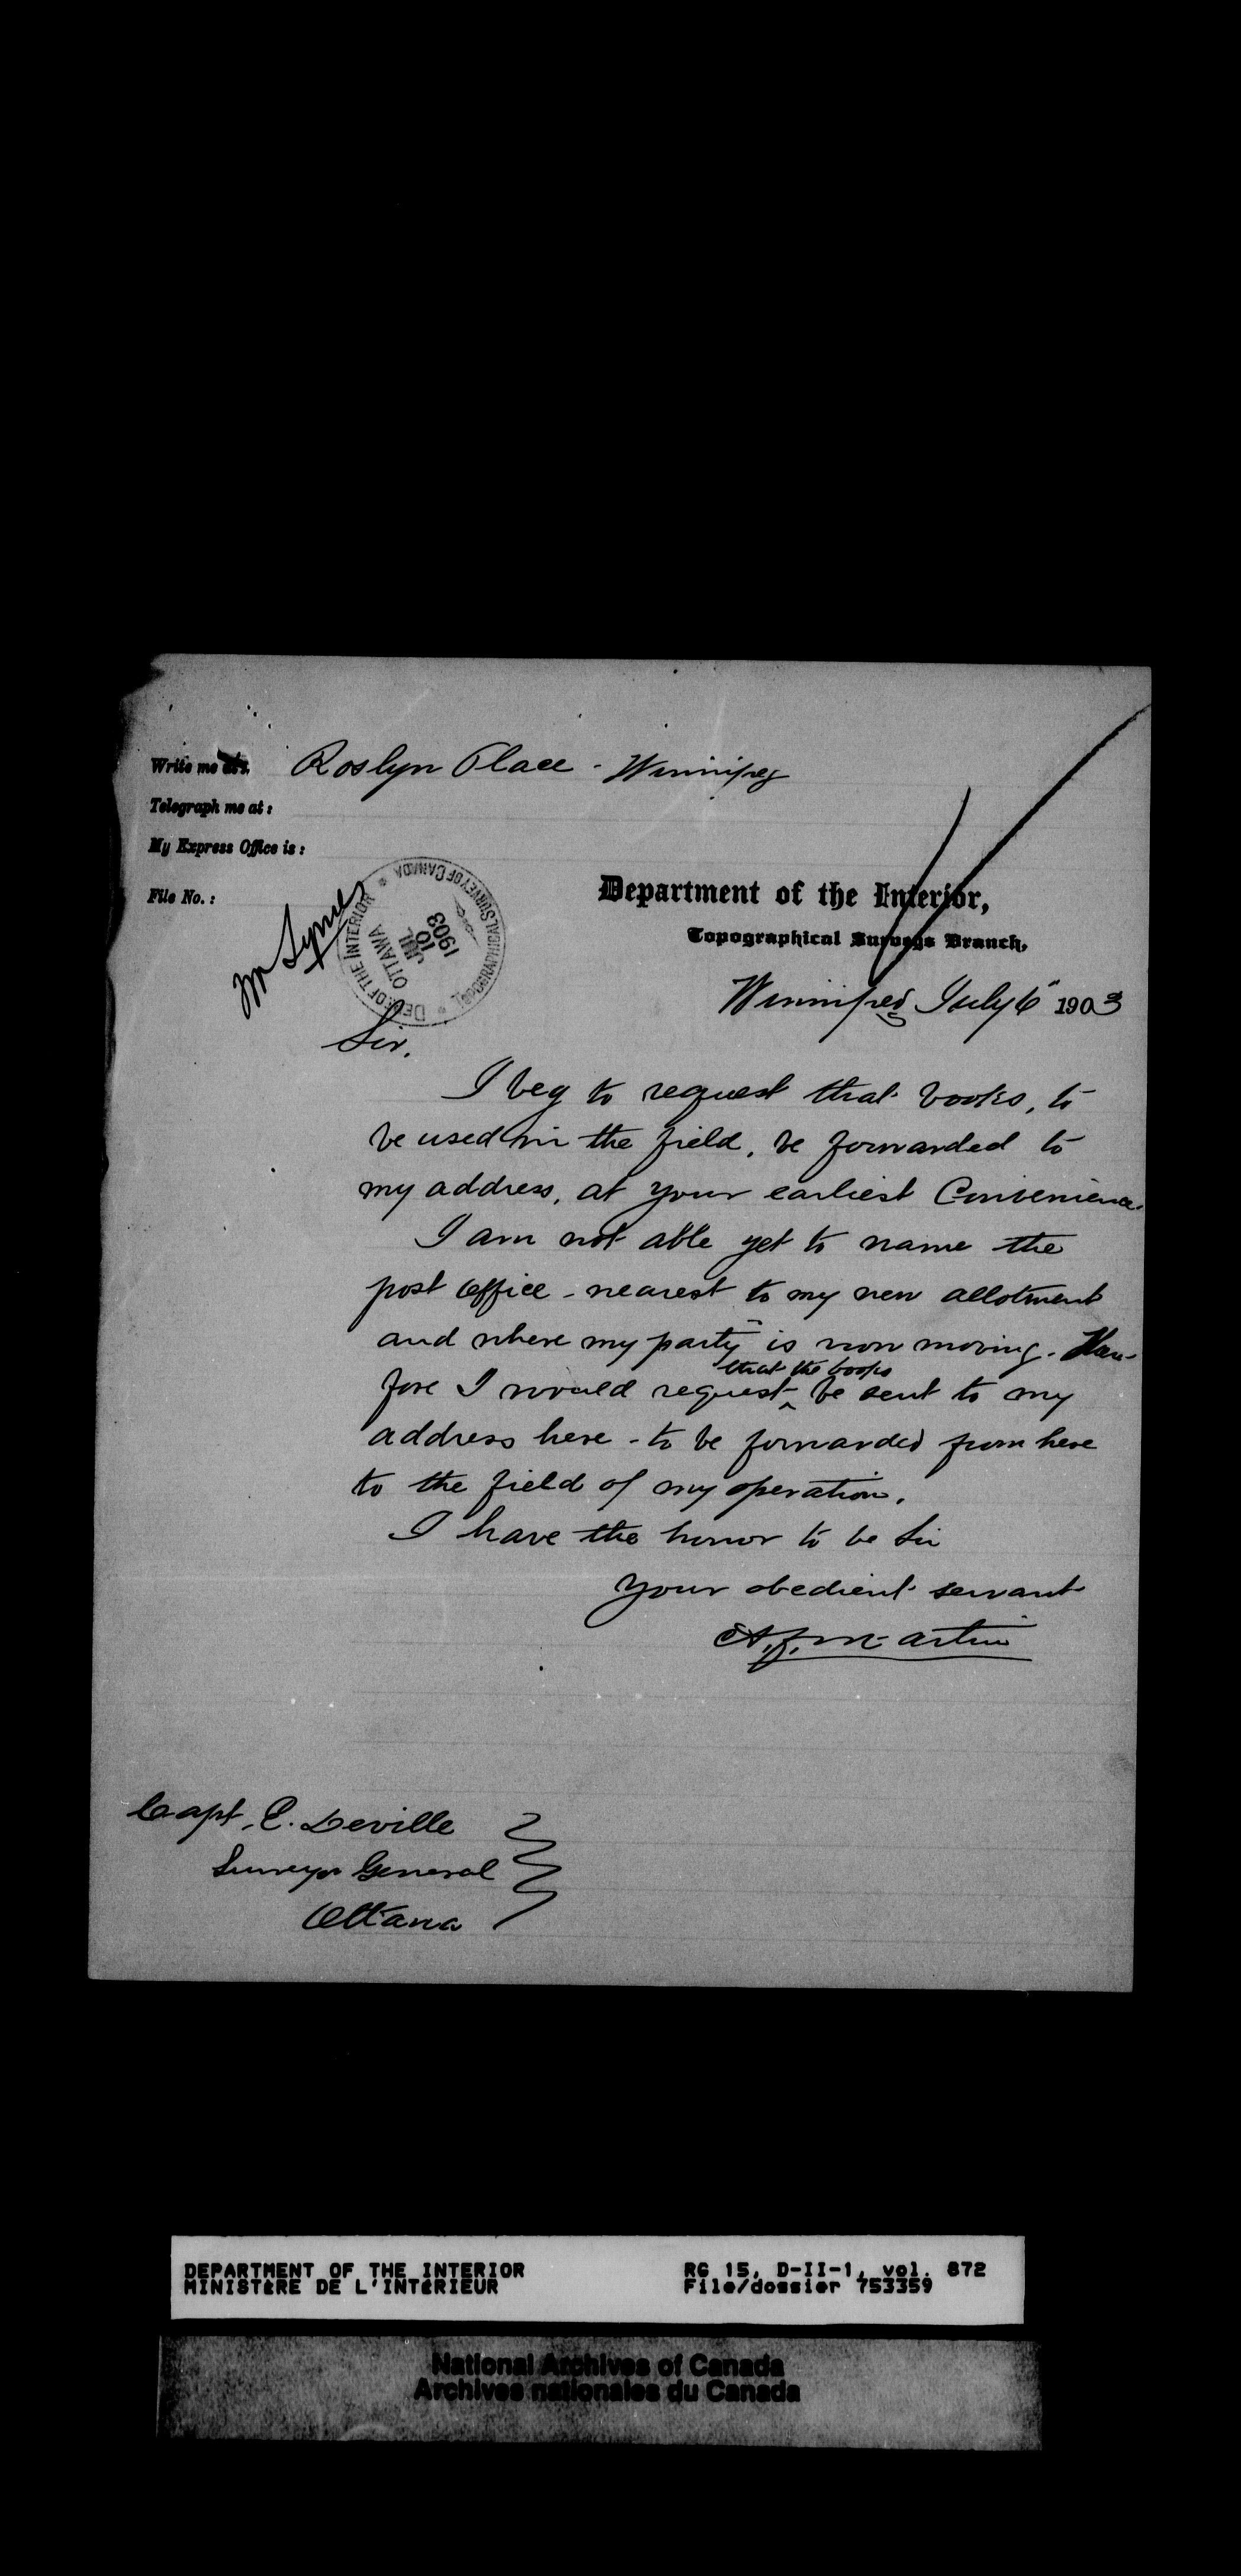 Write me at: Roslyn Place - Winnipeg
Telegraph me at:
My Express Office is:
File No.:
Mr Symes
DEP. OF THE INTERIOR * TOPOGRAPHICAL SURVEY OF CANADA *
OTTAWA
JUL
10
1903
Department of the Interior,
Topographical Surveys Branch,
Winnipeg July 6 1903
Sir.
I beg to request that books, to
be used in the field, be forwarded to
my address, at your earliest Convenience.
I am not able yet to name the
post office - nearest to my new allotment
and where my party is now moving. There-
fore I would request ^ that the books be sent to my
address here - to be forwarded from here
to the field of my operation.
I have the honor to be Sir
your obedient servant
A.F. Martin
Capt. E. Deville
Surveyor General
Ottawa
DEPARTMENT OF THE INTERIOR RG 15, D-II-1, vol. 872
MINISTÈRE DE L'INTÉRIEUR File/dossier 753359
National Archives of Canada
Archives nationales du Canada